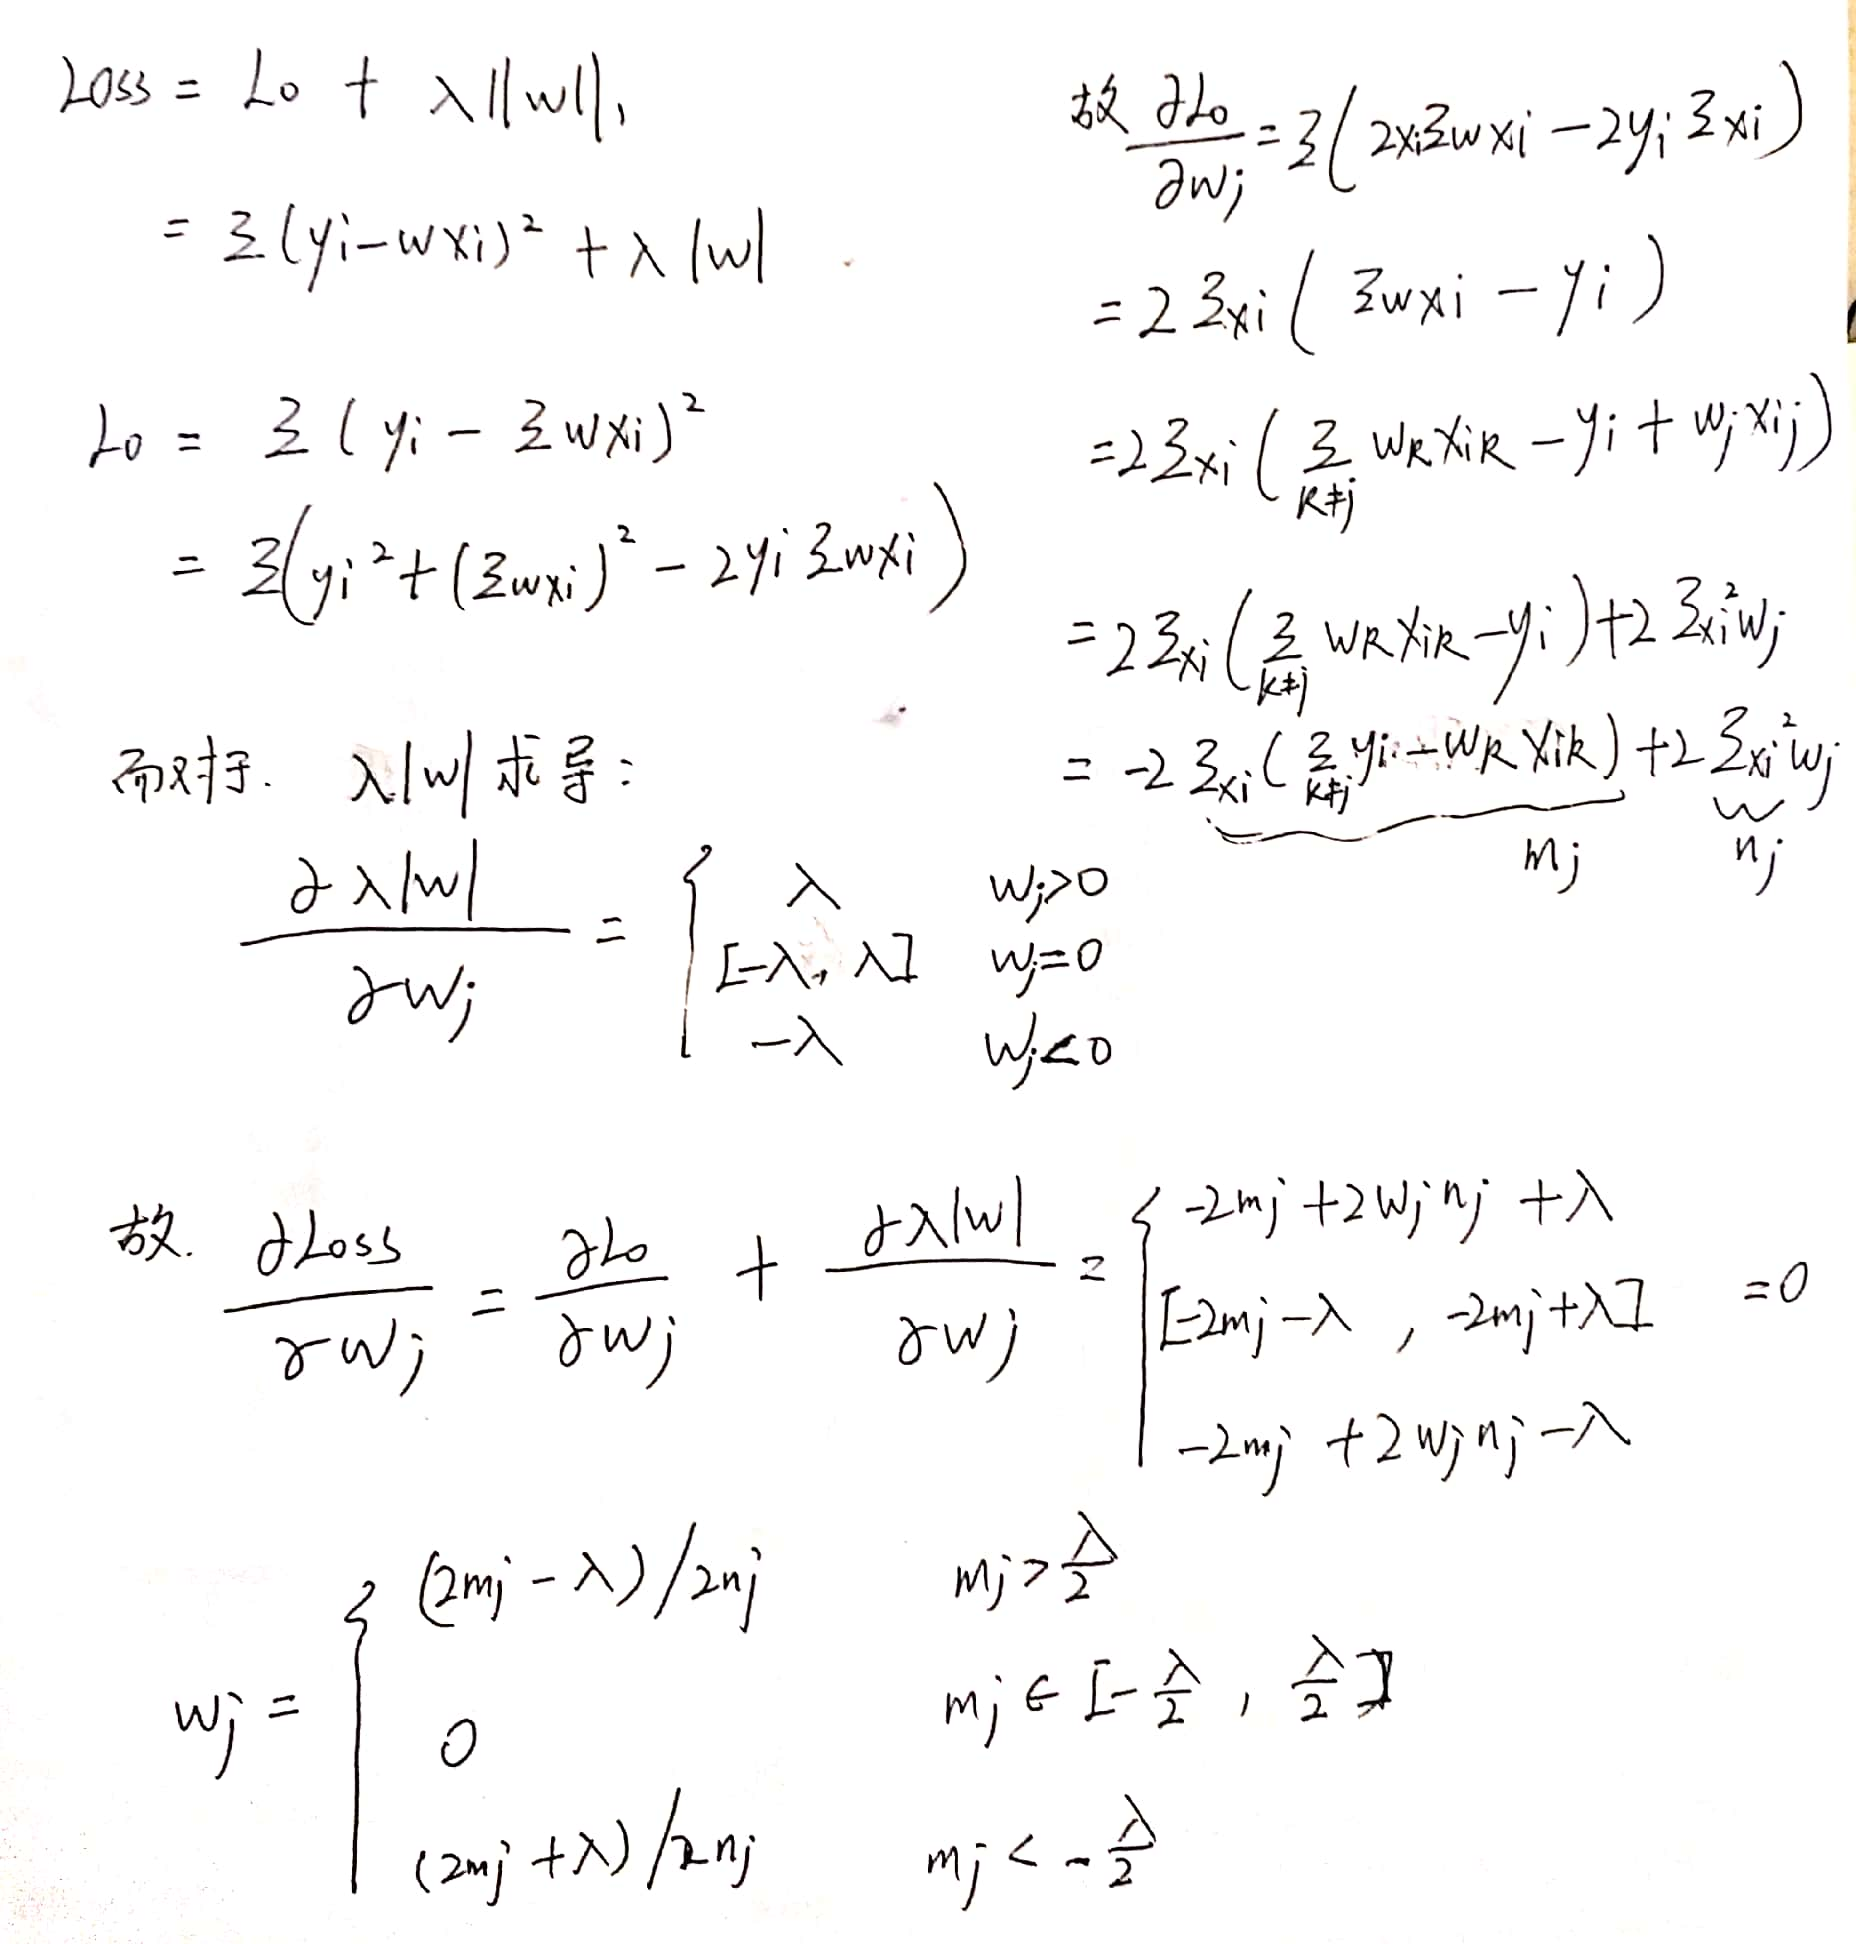 Loss = L₀ + λ||w||₁
= Σ(yi-wxi)² + λ|w|
L₀ = Σ(yi - Σwxi)²
= Σ(yi² + (Σwxi)² - 2yiΣwxi)
而对于. λ|w|求导:
∂λ|w| / ∂wj = { λ wj>0
[-λ, λ] wj=0
-λ wj<0
故 ∂L₀/∂wj = Σ(2xiΣwxi - 2yiΣxi)
= 2Σxi(Σwxi - yi)
= 2Σxi(Σ_{k≠j} wkxik - yi + wjxij)
= 2Σxi(Σ_{k≠j} wkxik - yi) + 2Σxi²wj
= -2Σxi(Σ_{k≠j} yi - wkxik) + 2Σxi²wj
mj nj
故. ∂Loss/∂wj = ∂L₀/∂wj + ∂λ|w|/∂wj = { -2mj + 2wjnj + λ
[-2mj-λ, -2mj+λ] =0
-2mj + 2wjnj - λ
wj = { (2mj-λ)/2nj mj>λ/2
0 mj∈[-λ/2, λ/2]
(2mj+λ)/2nj mj<-λ/2